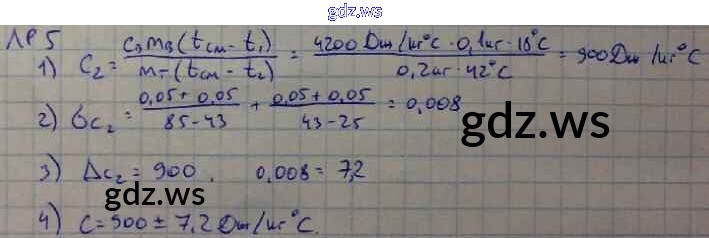 gdz.ws
ЛР 5
1) C₂ = cвmв(tсм - t₁) / mт(tсм - t₂) = 4200 Дж/кг°C · 0,1кг · 18°C / 0,2кг · 42°C = 900 Дж/кг°C
2) бc₂ = 0,05 + 0,05 / 85 - 43 + 0,05 + 0,05 / 43 - 25 = 0,008
gdz.ws
3) Δc₂ = 900 . 0,008 = 7,2
gdz.ws
4) C = 900 ± 7,2 Дж/кг°C.
gdz.ws